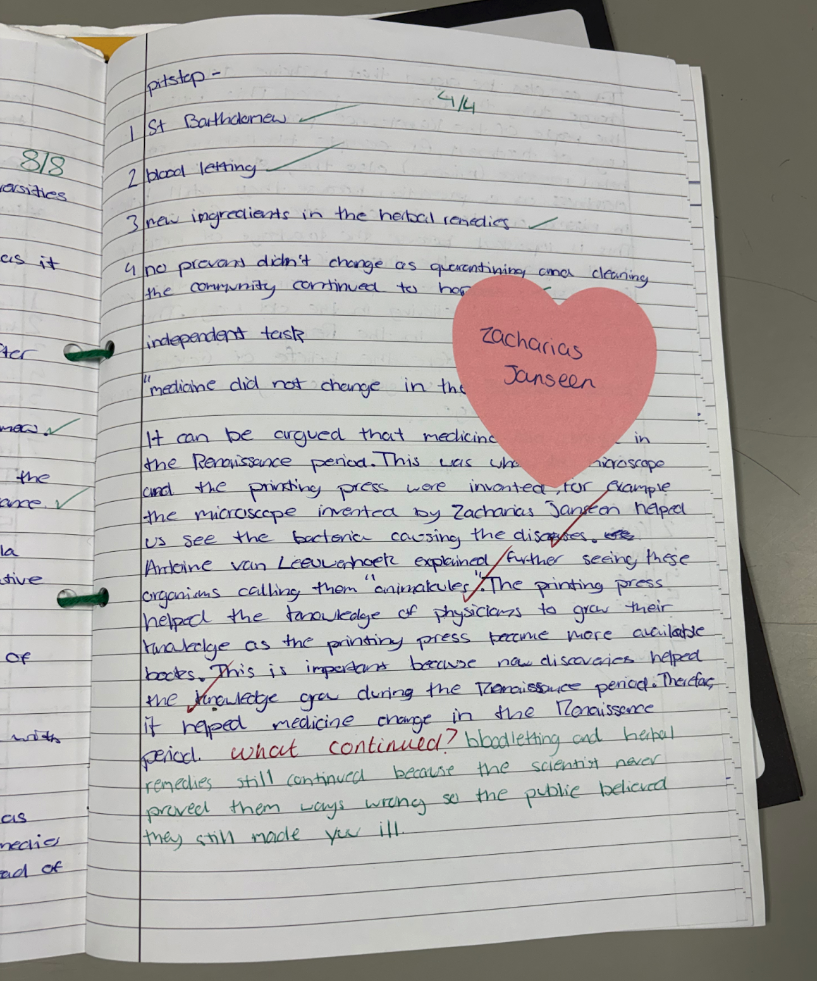 8/8
ersities
as it
ter
the
la
tive
of
with
as
medies
ad of
pitstop -
4/4
1 St Bartholomew
2 blood letting
3 new ingredients in the herbal remedies
4 no prevent didn't change as quarentining and cleaning
the community continued to
independent task
"medicine did not change in the
Zacharias
Janseen
It can be argued that medicine in
the Renaissance period. This was microscope
and the printing press were invented, for example
the microscope invented by Zacharias Janseen helped
us see the bacteria causing the diseases.
Antoine van Leeuwenhoek explained further seeing these
organisms calling them "animalcules". The printing press
helped the knowledge of physicians to grow their
knowledge as the printing press become more available
books. This is important because new discoveries helped
the knowledge grow during the Renaissance period. Therefore,
it helped medicine change in the Renaissance
period. What continued? bloodletting and herbal
remedies still continued because the scientist never
proved them ways wrong so the public believed
they still made you ill.